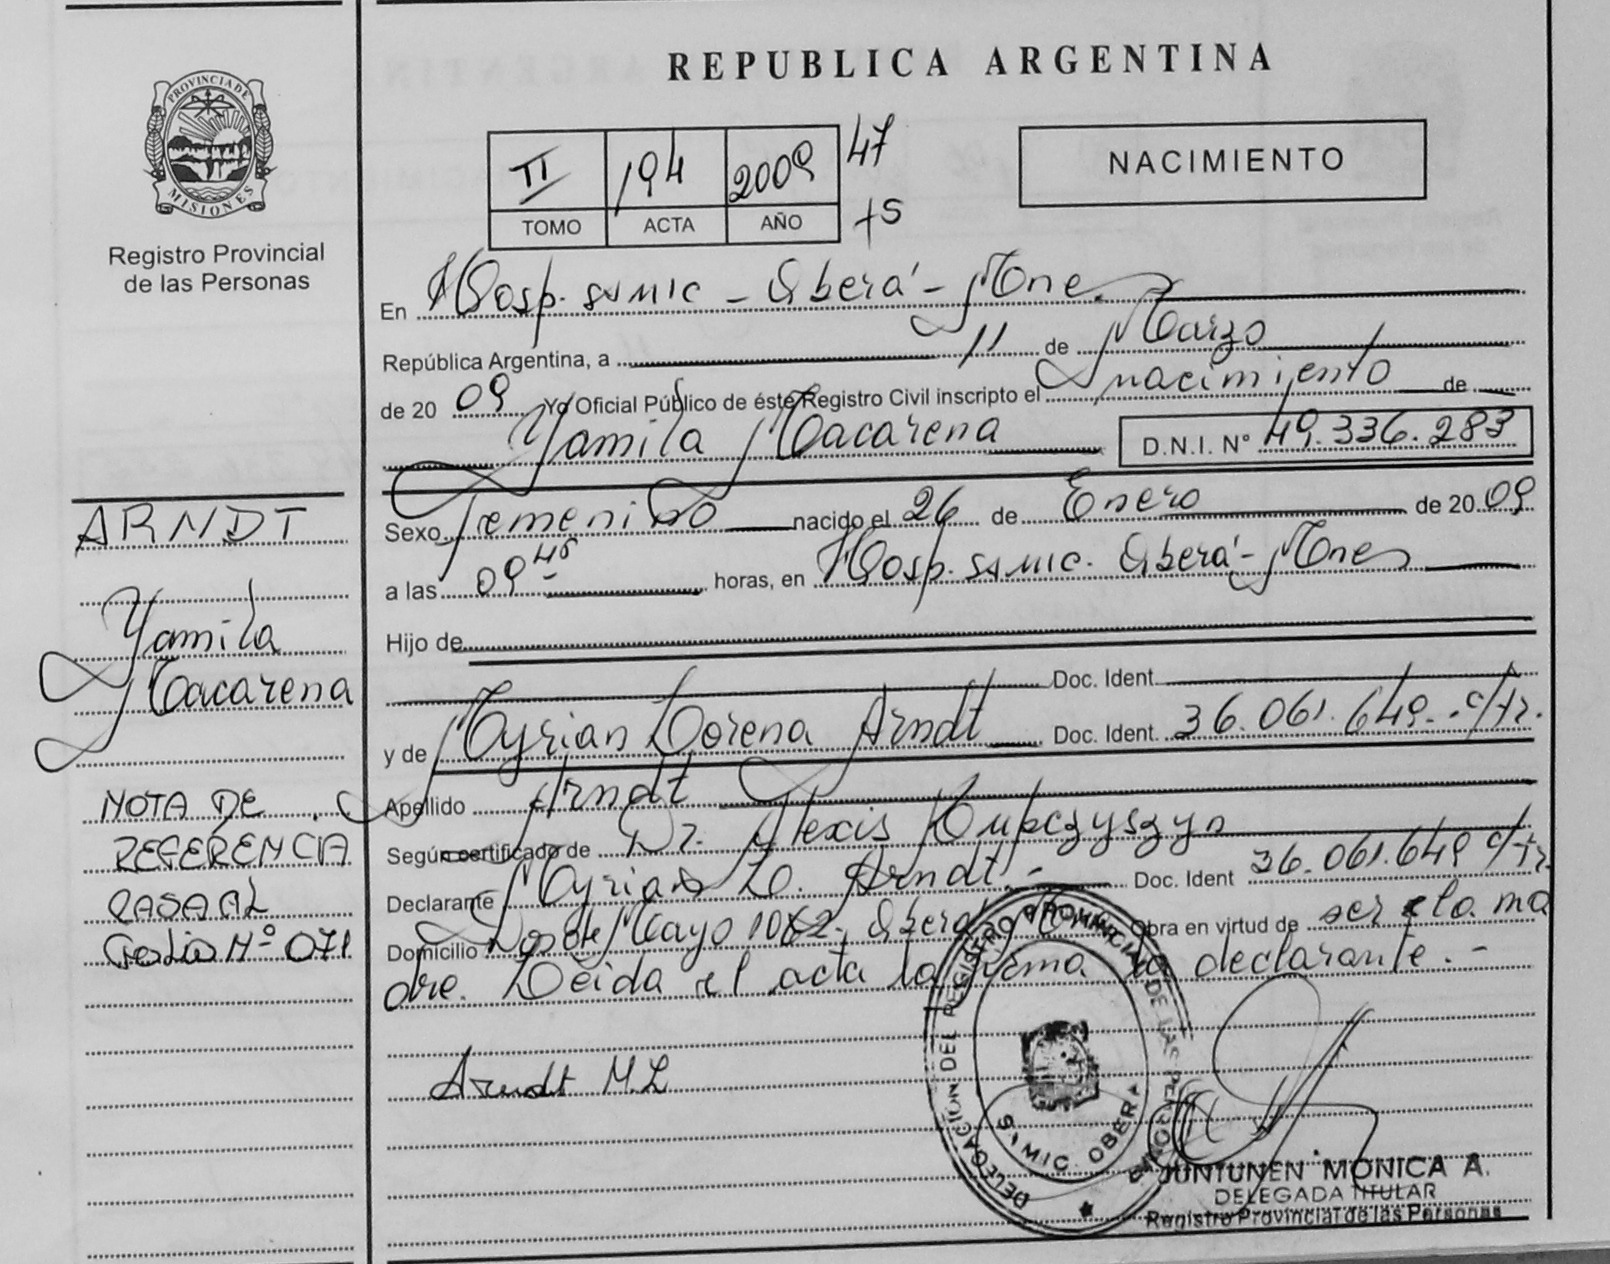 PROVINCIA DE
MISIONES
Registro Provincial
de las Personas
REPUBLICA ARGENTINA
II 194 2009 47
TOMO ACTA AÑO +5
NACIMIENTO
En Hosp. SAMIC - Oberá - Mnes.
República Argentina, a 11 de Marzo
de 20 09 Yo Oficial Público de éste Registro Civil inscripto el nacimiento de
Yamila Macarena D.N.I. Nº 49.336.283
Sexo femenino nacido el 26 de Enero de 20 09
a las 09 45 horas, en Hosp. SAMIC. Oberá - Mnes
Hijo de
Doc. Ident.
y de Myrian Lorena Arndt Doc. Ident. 36.061.649.- c/tr.
Apellido Arndt
Según certificado de Dr. Alexis Kupczyszyn
Declarante Myrian Lo. Arndt.- Doc. Ident 36.061.649 c/tr.
Domicilio Dos de Mayo 1062. Oberá Obra en virtud de ser la ma
dre. Leida el acta la firma la declarante.-
Arndt M.L
ARNDT
Yamila
Macarena
NOTA DE
REFERENCIA
PASA AL
Folio Nº 071
DELEGACIÓN DEL REGISTRO PROVINCIAL DE LAS PERSONAS
SAMIC. OBERA
JUNTUNEN MONICA A.
DELEGADA TITULAR
Registro Provincial de las Personas